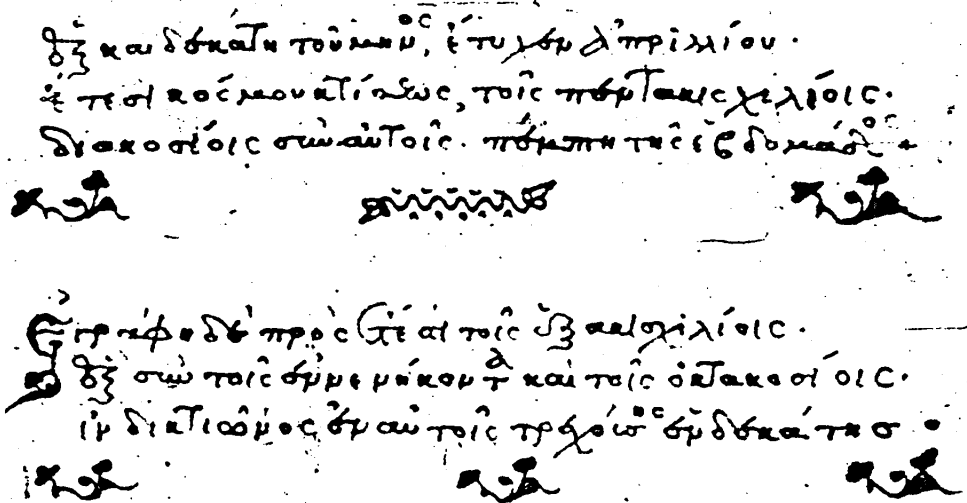 ἓξ και δεκάτη τοῦ μηνός, ἐτύχεν ἀπριλλίου.
ἔτεσι κόσμου κτίσεως, τοῖς πεντάκις χιλίοις.
διακοσίοις σὺν αὐτοῖς. πέμπτη τῆς ἑβδομάδος
Ἐγράφη δὲ πρὸς ἔτεσι τοῖς ἑξακισχιλίοις.
ἓξ σὺν τοῖς ἐννενήκοντα καὶ τοῖς ὀκτακοσίοις.
ἰνδικτιῶνος ἐν αὐτοῖς τρεχούσης ἑνδεκάτης